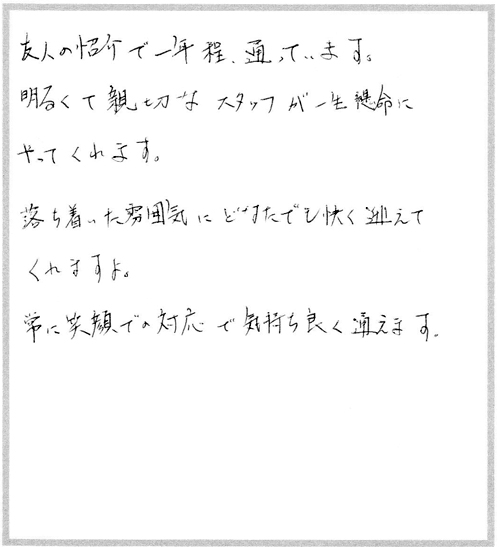 友人の紹介で一年程、通っています。
明るくて親切なスタッフが一生懸命に
やってくれます。
落ち着いた雰囲気にどなたでも快く迎えて
くれますよ。
常に笑顔での対応で気持ち良く通えます。